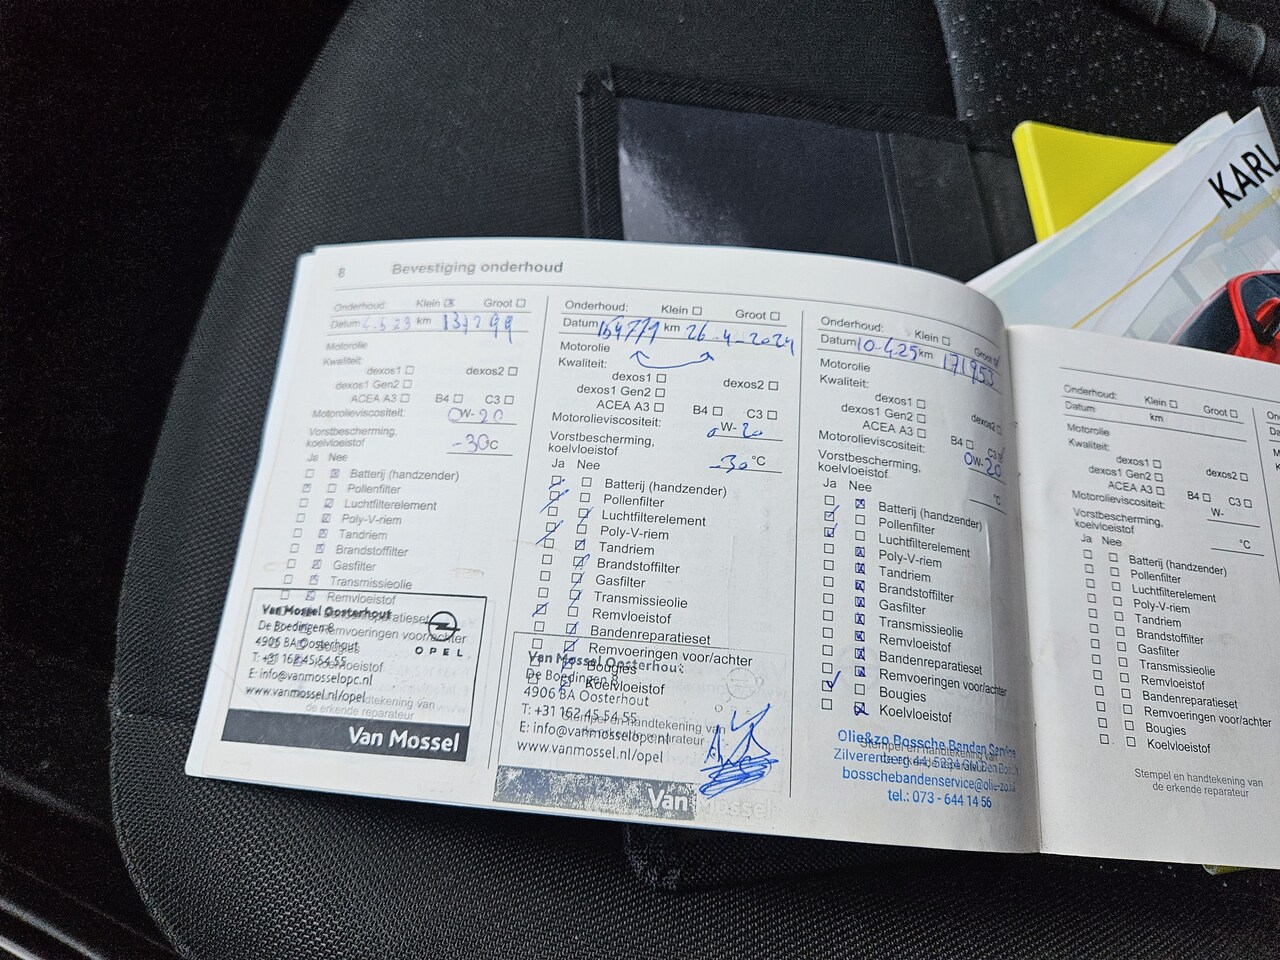 KARL
8 Bevestiging onderhoud
Onderhoud: Klein ☒ Groot ☐
Datum 4.5.23 km 137299
Motorolie
Kwaliteit:
dexos1 ☐ dexos2 ☐
dexos1 Gen2 ☐
ACEA A3 ☐ B4 ☐ C3 ☐
Motorolieviscositeit: 0W-20
Vorstbescherming,
koelvloeistof -30C
Ja Nee
Batterij (handzender)
Pollenfilter
Luchtfilterelement
Poly-V-riem
Tandriem
Brandstoffilter
Gasfilter
Transmissieolie
Remvloeistof
Bandenreparatieset
Remvoeringen voor/achter
Bougies
Koelvloeistof
Van Mossel Oosterhout
De Boedingen 8
4906 BA Oosterhout
T: +31 162 45 54 55
E: info@vanmosselopc.nl
www.vanmossel.nl/opel
OPEL
Stempel en handtekening van
de erkende reparateur
Van Mossel
Onderhoud: Klein ☐ Groot ☐
Datum 154771 km 26-4-2024
Motorolie
Kwaliteit:
dexos1 ☐ dexos2 ☐
dexos1 Gen2 ☐
ACEA A3 ☐ B4 ☐ C3 ☐
Motorolieviscositeit: 0W-20
Vorstbescherming,
koelvloeistof -30°C
Ja Nee
Batterij (handzender)
Pollenfilter
Luchtfilterelement
Poly-V-riem
Tandriem
Brandstoffilter
Gasfilter
Transmissieolie
Remvloeistof
Bandenreparatieset
Remvoeringen voor/achter
Bougies
Koelvloeistof
Van Mossel Oosterhout
De Boedingen 8
4906 BA Oosterhout
T: +31 162 45 54 55
E: info@vanmosselopc.nl
www.vanmossel.nl/opel
Stempel en handtekening van
de erkende reparateur
Van Mossel
Onderhoud: Klein ☐ Groot
Datum 10-4-25 km 171953
Motorolie
Kwaliteit:
dexos1 ☐ dexos2
dexos1 Gen2 ☐
ACEA A3 ☐ B4 ☐ C3
Motorolieviscositeit: 0W-20
Vorstbescherming,
koelvloeistof °C
Ja Nee
Batterij (handzender)
Pollenfilter
Luchtfilterelement
Poly-V-riem
Tandriem
Brandstoffilter
Gasfilter
Transmissieolie
Remvloeistof
Bandenreparatieset
Remvoeringen voor/achter
Bougies
Koelvloeistof
Olie&zo Bossche Banden Service
Stempel en handtekening van
Zilverenberg 44, 5234 GM Den Bosch
de erkende reparateur
bosschebandenservice@olie-zo.nl
tel.: 073 - 644 14 56
Onderhoud: Klein ☐ Groot ☐
Datum km
Motorolie
Kwaliteit:
dexos1 ☐ dexos2 ☐
dexos1 Gen2 ☐
ACEA A3 ☐ B4 ☐ C3 ☐
Motorolieviscositeit: W-
Vorstbescherming,
koelvloeistof °C
Ja Nee
Batterij (handzender)
Pollenfilter
Luchtfilterelement
Poly-V-riem
Tandriem
Brandstoffilter
Gasfilter
Transmissieolie
Remvloeistof
Bandenreparatieset
Remvoeringen voor/achter
Bougies
Koelvloeistof
Stempel en handtekening van
de erkende reparateur